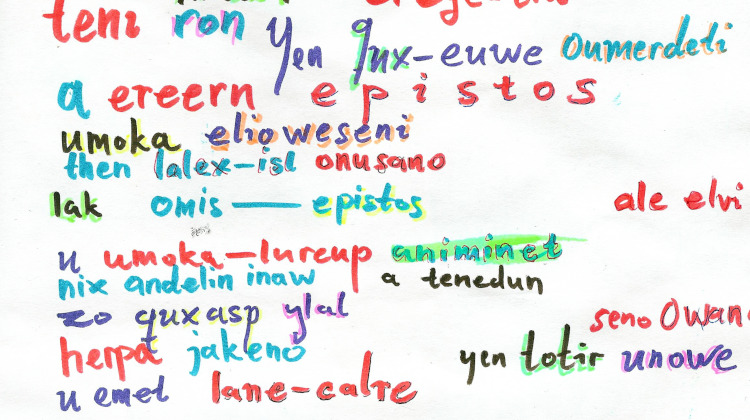 teni ron yen qux-euwe oumerdeti
a ereern epistos
umoka elioweseni
then lalex-isl onusano
lak omis — epistos ale elvi
u umoka-lureup animinet
nix andelin inaw a tenedun
zo quxasp ylal
seno
herpa jakeno yen totir unowe
u emet lane-calre